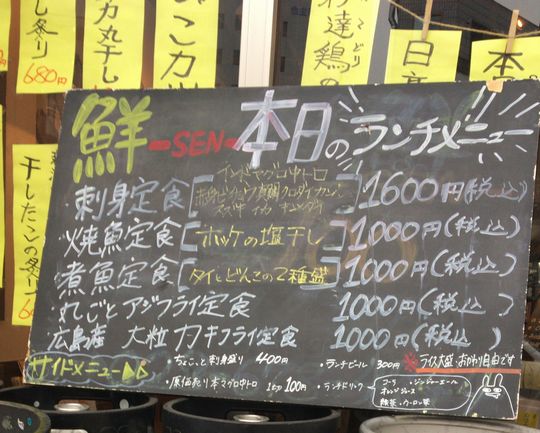 し炙り
680円
カ丸干し
こカツ
達鶏の
日
本
干したこの炙り
鮮 -SEN- 本日のランチメニュー
刺身定食
インドマグロ中トロ
1600円(税込)
スズキ イカ
焼魚定食 ホッケの塩干し 1000円(税込)
煮魚定食 1000円(税込)
丸ごとアジフライ定食 1000円(税込)
広島産 大粒カキフライ定食 1000円(税込)
サイドメニュー
・ちょこっと刺身盛り 400円
・ランチビール 300円
ライス大盛・おかわり自由です
・原価売り本マグロ中トロ 1カン100円
・ランチドリンク
コーラ ・ジンジャーエール
オレンジジュース
緑茶・ウーロン茶